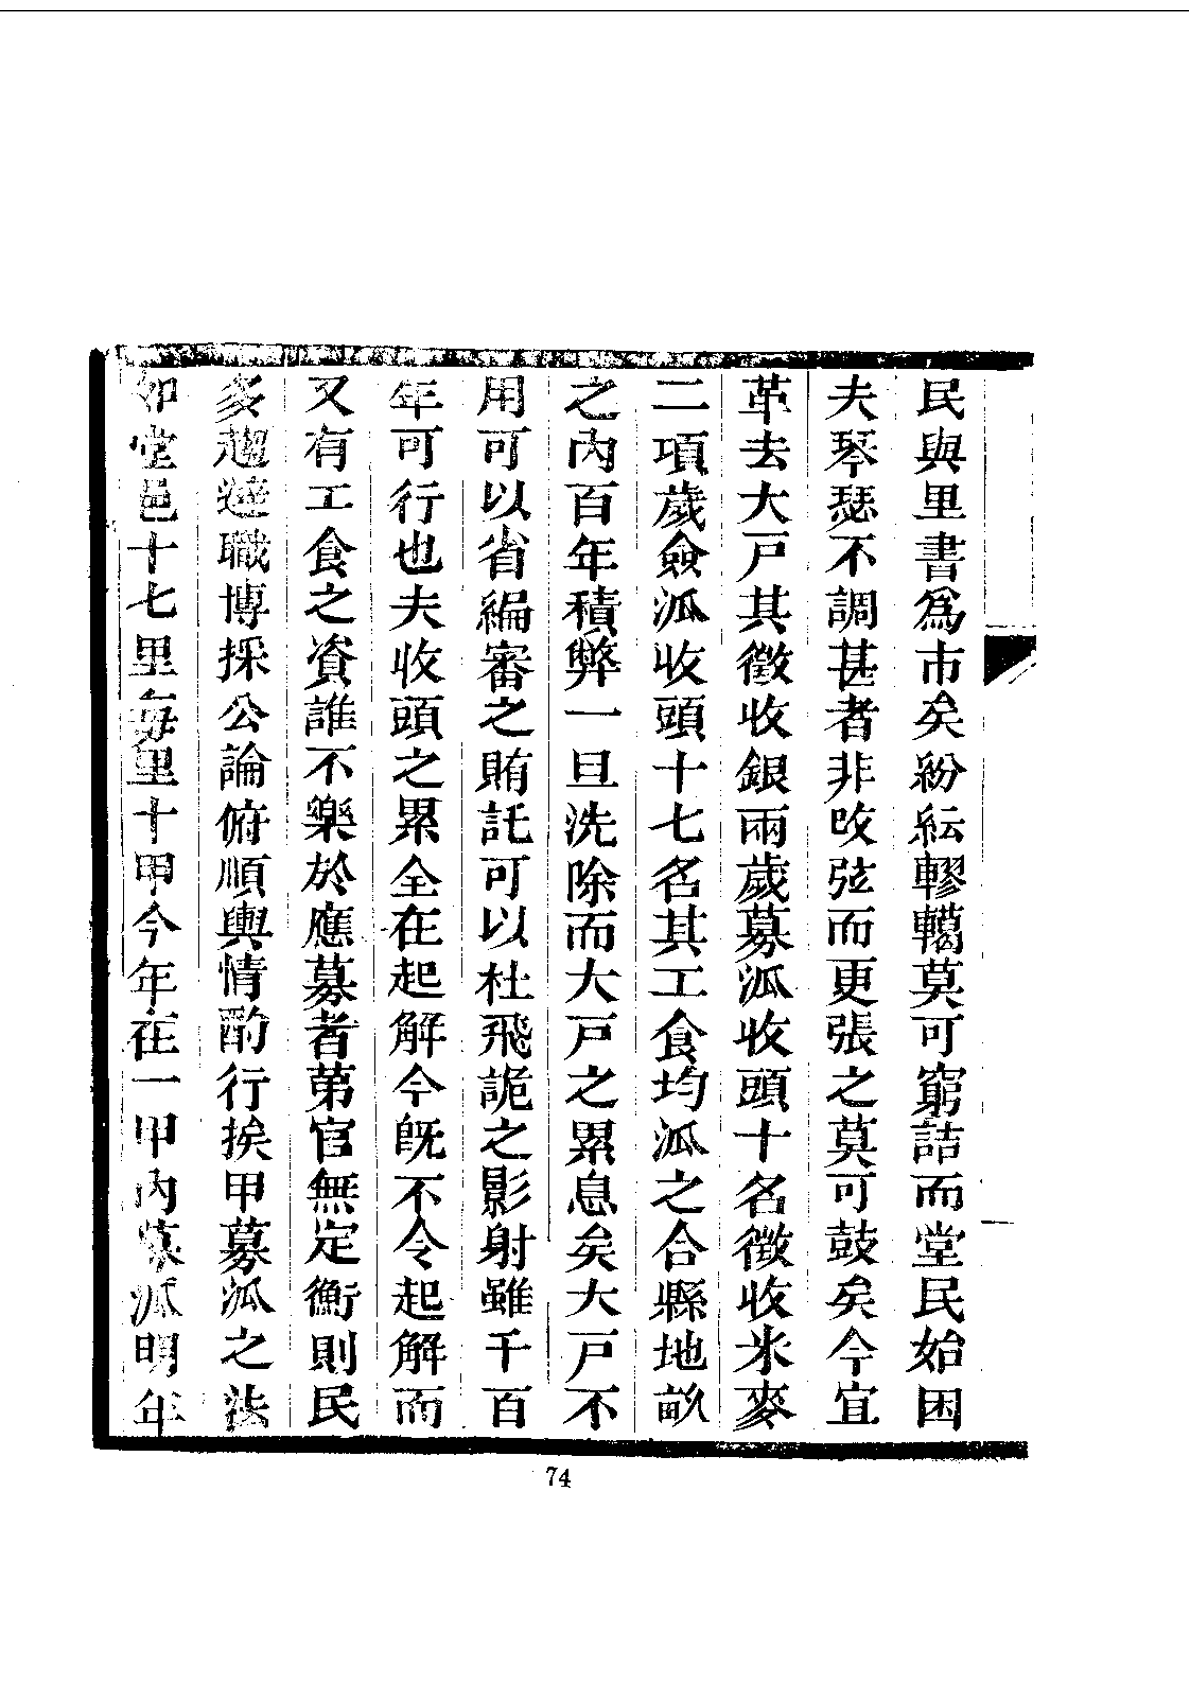 民與里書爲市矣紛紜轇轕莫可窮詰而堂民始困
夫琴瑟不調甚者非改弦而更張之莫可鼓矣今宜
革去大戸其徵收銀兩歲募派收頭十名徵收米麥
二項歲僉派收頭十七名其工食均派之合縣地畝
之內百年積弊一旦洗除而大戸之累息矣大戸不
用可以省編審之賄託可以杜飛詭之影射雖千百
年可行也夫收頭之累全在起解今既不令起解而
又有工食之資誰不樂於應募者第官無定衡則民
多趨避職博採公論俯順輿情酌行挨甲募派之法
如堂邑十七里每里十甲今年在一甲內募派明年
74